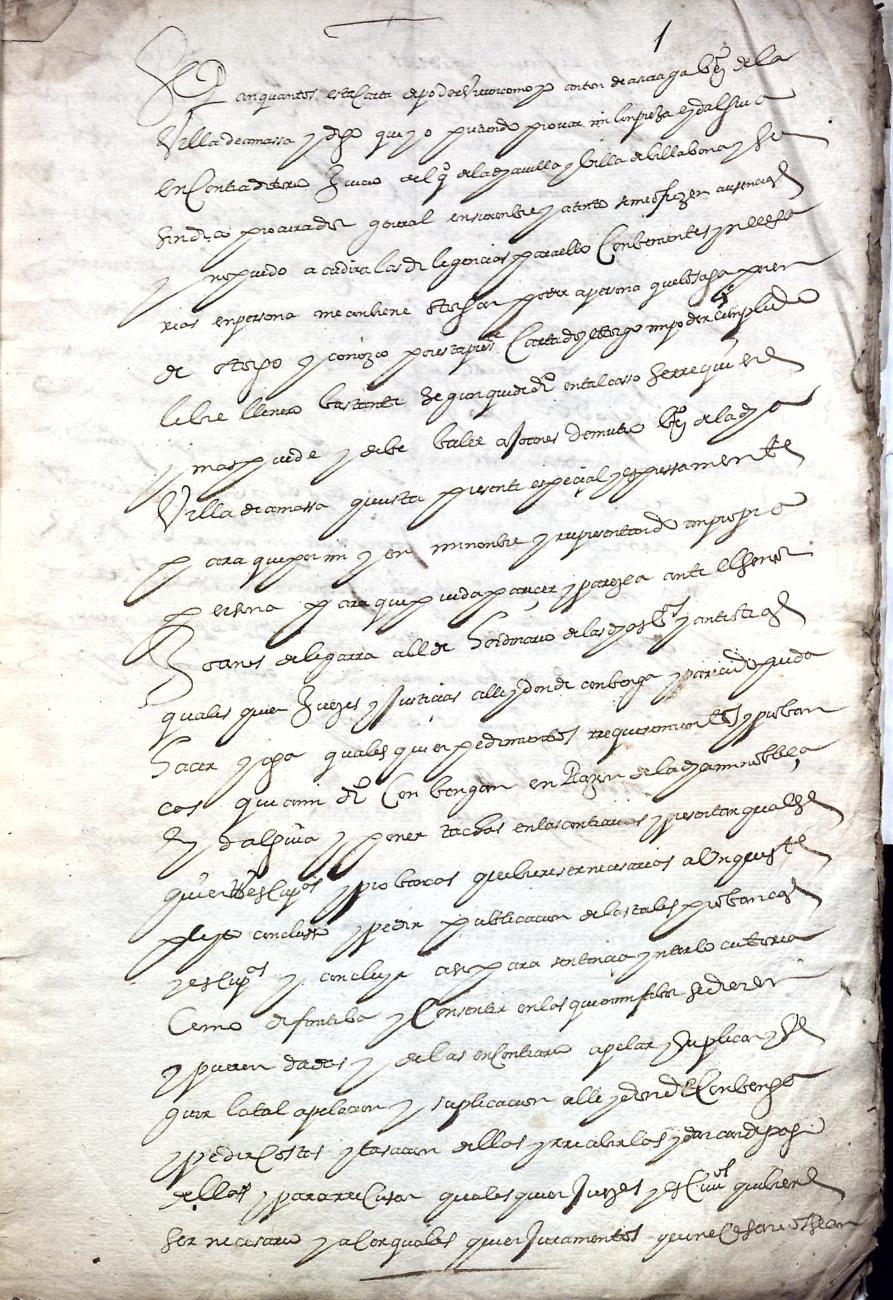 1
Sepan quantos esta carta de poder vieren como yo anton de asteaga vzº de la
Villa de amassa y digo que yo pretendo provar mi limpieza e ydalguia
en contraditorio Juicio del qº de la dha villa y billa de billabona y su
sindico procurador general en su nombre y atento se me ofrezen ausencias
y no puedo acudir a las diligencias para ello conbenientes y necesa
rias en persona me conbiene otorgar poder a persona que lo haga por en
de otorgo y conozco por esta pressᵗᵉ carta doy y otorgo mi poder cumplido
libre llenero bastante segun que de drº en tal casso se rrequiere
y mas puede y debe baler a Joanes de vzº de la dha
Villa de amassa que esta presente especial y espressamente
para que por mi y en mi nombre y rrepresentando mi propia
persona para que pueda parecer y parezca ante el señor
Joanes de legarra allde hordinario de las dhas y ante otras
quales quier Juezes y Justicias alli y donde conbenga y para que pueda
hacer y haga quales quier pedimentos rrequerimientos y proban
cas que a mi drº conbengan en Razon de la dha mi nobleça
hydalguia y poner tachas en las contrarias y presentar quales
quier escripᵒˢ y probancas que biere ser necesarios asta que este
pleyto concluso y pedir publicacion de las tales probancas
y escripᵒˢ y concluyr asi para sentencia ynterlocutoria
como difinitiba y consentir en las que en mi fabor se dieren
y fueren dadas y de las en contrario apelar y suplicar y se
guir la tal apelacion y suplicacion alli y donde conbenga
y pedir costas y tasacion dellas y rrecibirlas y dar carta de pago
dellas y para rrecusar quales quier Juezes y escrivᵒˢ que biere
ser necesario y alcer quales quier Juramentos que necesarios sean